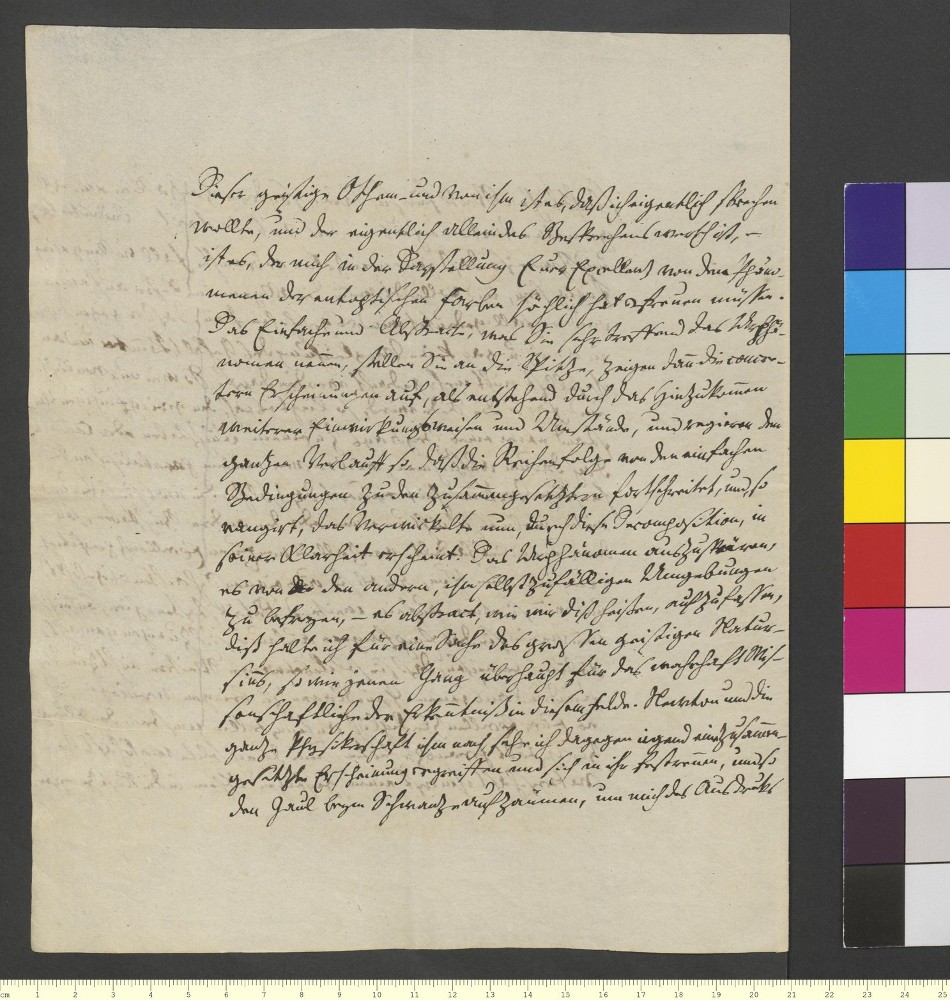 Dieser geistige Othem – und von ihm ist es, daß ich eigentlich sprechen
wollte, und der eigentlich allein des Besprechens werth ist, –
ist es, der mich in der Darstellung Euer Excellenz von den Phäno-
menen der entoptischen Farben höchlich hat erfreuen müssen.
Das Einfache und Abstracte, was Sie sehr treffend das Urphä-
nomen nennen, stellen Sie an die Spitze, zeigen dann die concre-
tern Erscheinungen auf, als entstehend durch das Hinzukommen
weiterer Einwirkungsweisen und Umstände, und regieren den
ganzen Verlauff so, daß die Reihenfolge von den einfachen
Bedingungen zu den zusammengesetztern fortschreitet, und, so
rangirt, das Verwickelte nun, durch diese Decomposition, in
seiner Klarheit erscheint. Das Urphänomen auszuspüren,
es von den andern, ihm selbst zufälligen Umgebungen
zu befreyen, – es abstract, wie wir diß heißen, aufzufassen,
diß halte ich für eine Sache des großen geistigen Natur-
sinns, so wie jenen Gang überhaupt für das wahrhaft Wis-
senschaftliche der Erkenntniß in diesem Felde. Newton und die
ganze Physikerschaft ihm nach, sehe ich dagegen irgend eine zusammen-
gesetzte Erscheinung ergreiffen und sich in ihr festrennen, und so
den Gaul beym Schwanze aufzäumen, um mich des Ausdruks